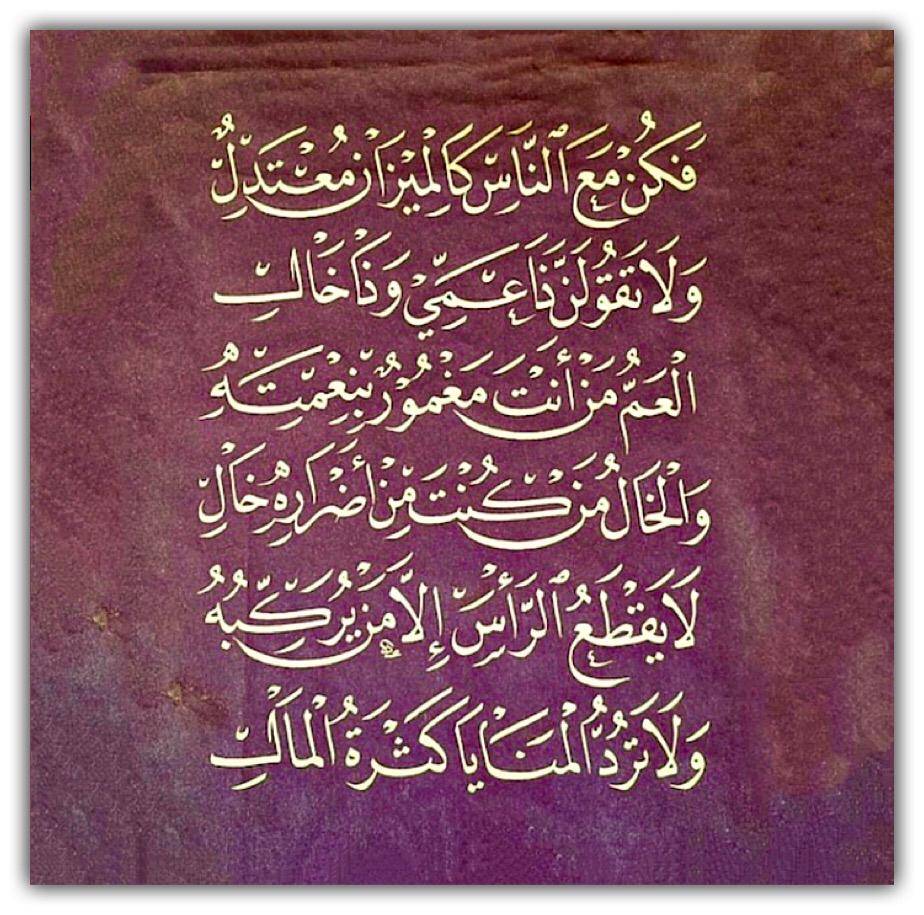 فَكُنْ مَعَ ٱلنَّاسِ كَالْمِيْزَانِ مُعْتَدِلٌ
وَلَا تَقُوْلَنَّ ذَا عَمِّيْ وَذَا خَالِ
الْعَمُّ مَنْ أَنْتَ مَغْمُوْرٌ بِنِعْمَتِهِ
وَالْخَالُ مَنْ كُنْتَ مِنْ أَضْرَارِهِ خَالِ
لَا يَقْطَعُ ٱلرَّأْسَ إِلَّا مَنْ يُرَكِّبُهُ
وَلَا تَرُدُّ الْمَنَايَا كَثْرَةُ الْمَالِ